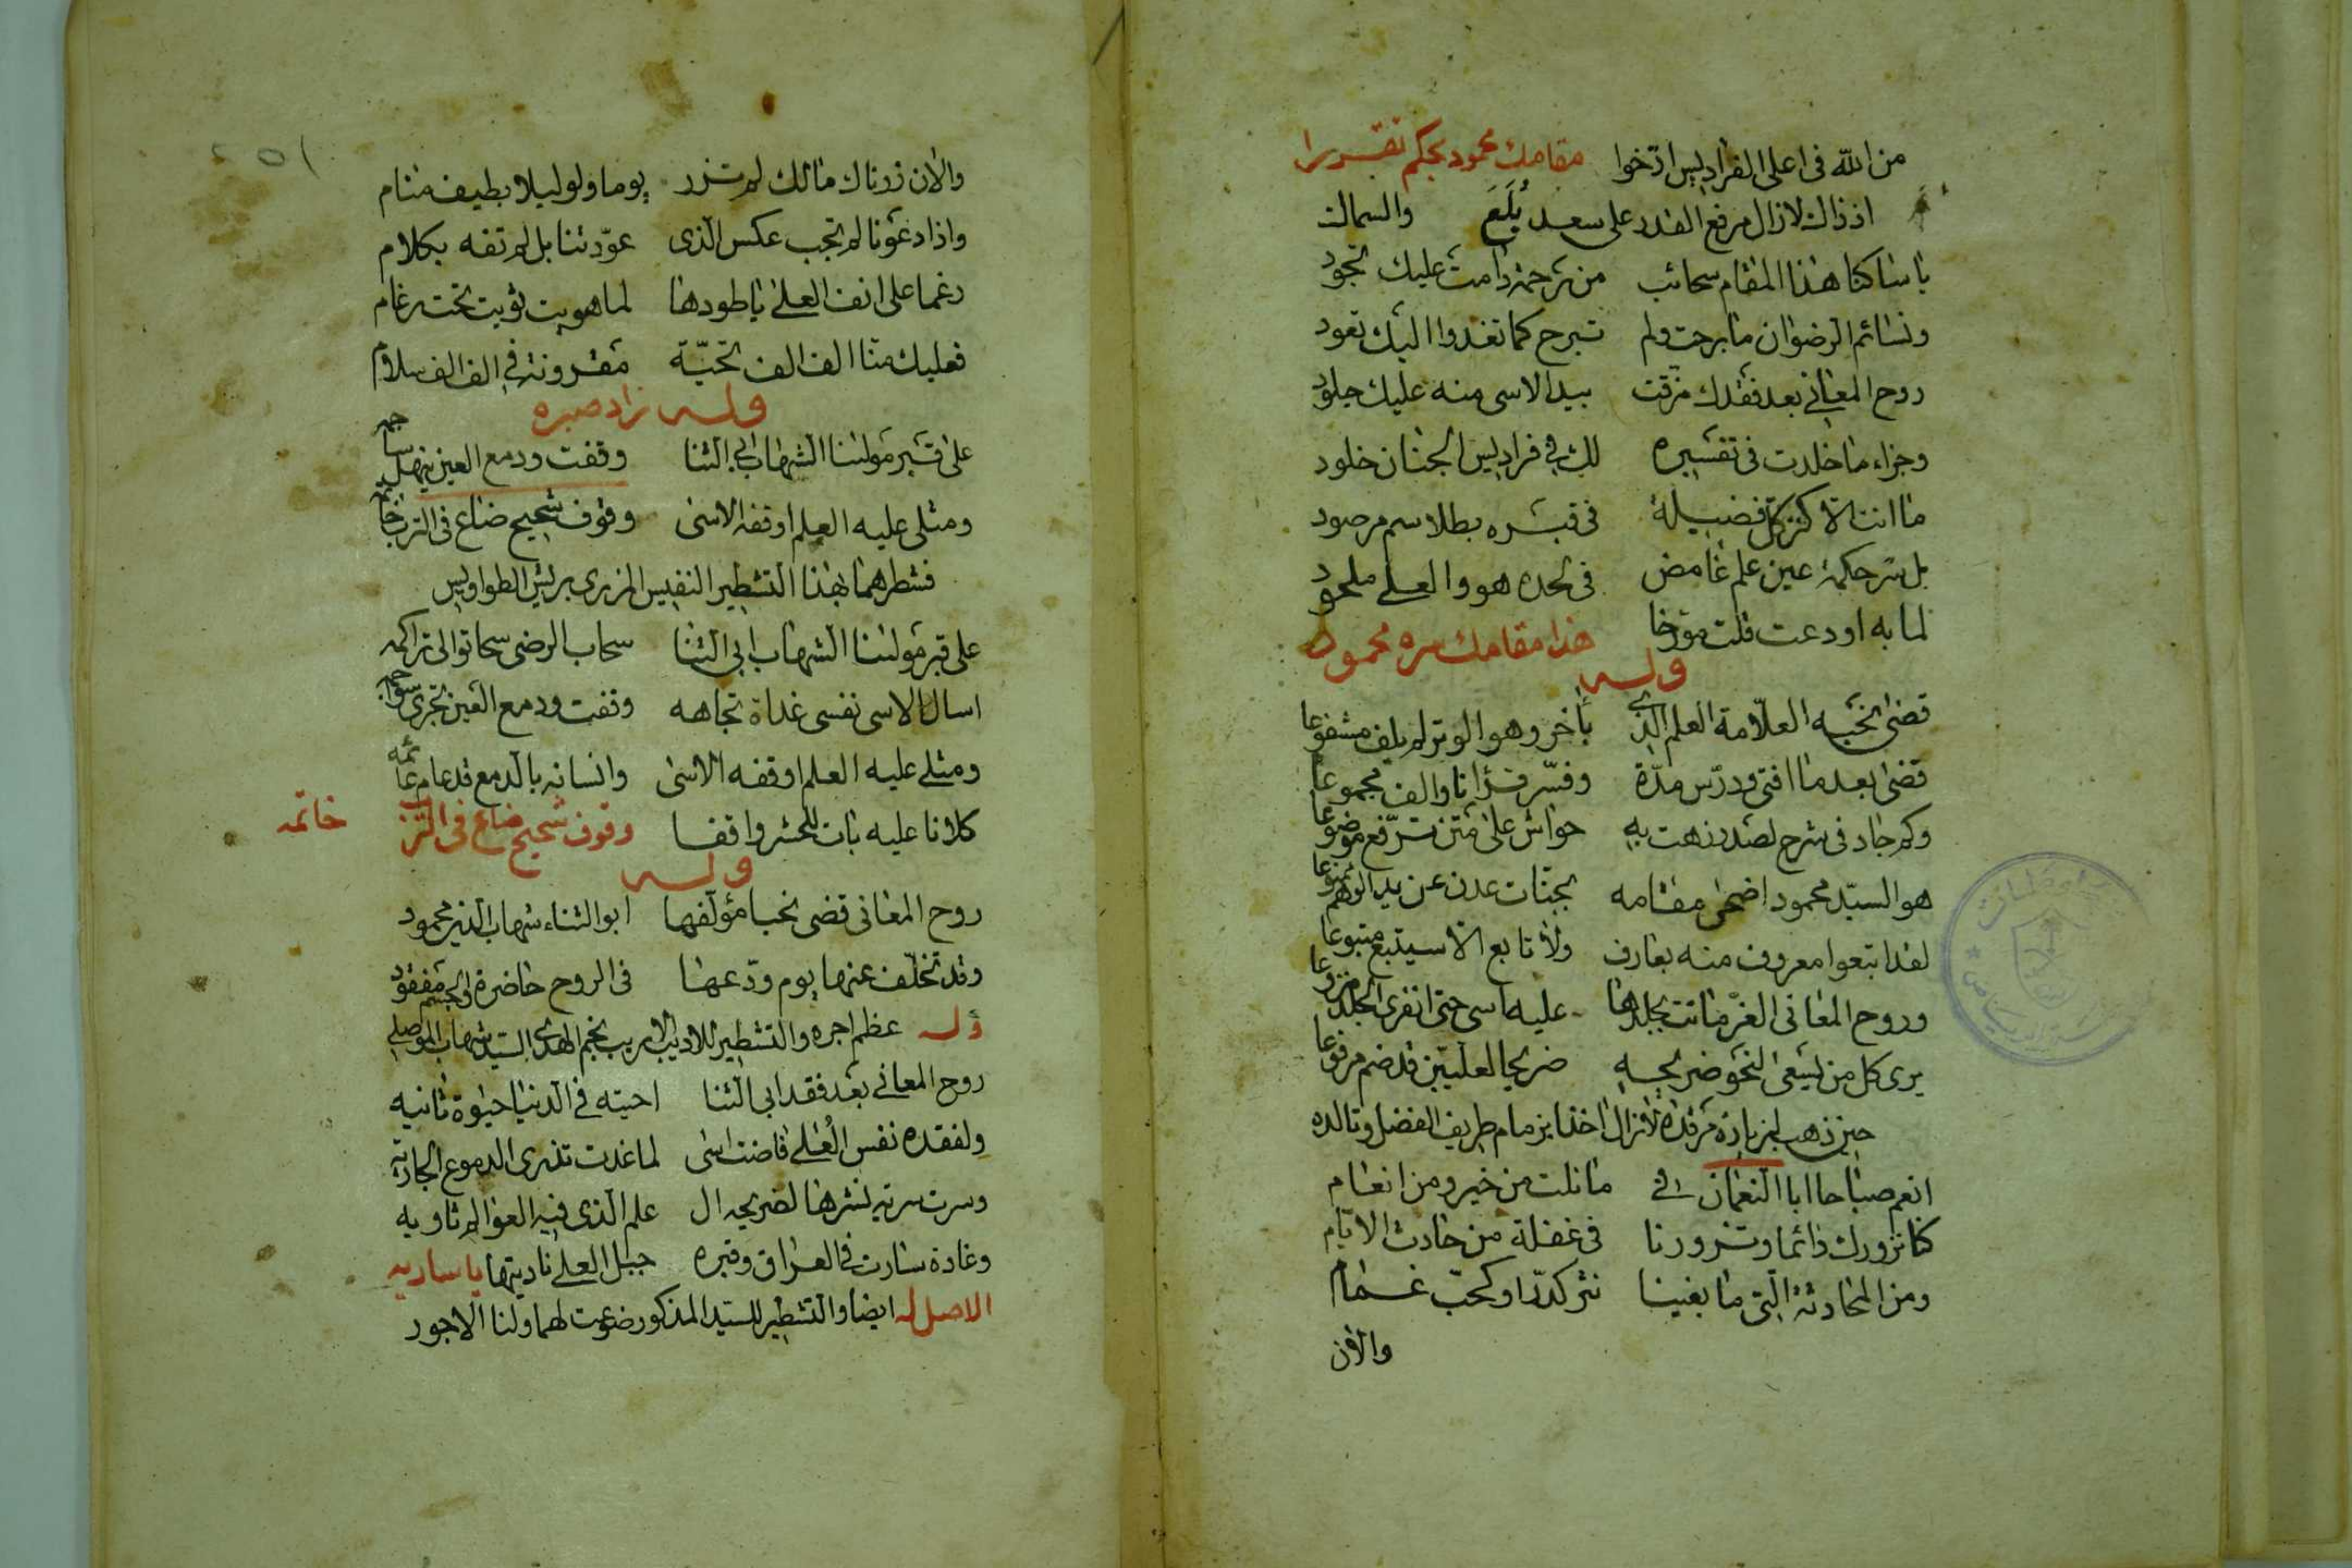 من الله في اعلى الفراديس ارخوا مقامك محمود بحكم تقريرا
اذ ذاك لازال مرفع القدر على سعد بُلَعَ والسماك
يا ساكنا هذا المقام سحائب من رحمة دامت عليك تجود
ونسائم الرضوان ما برحت ولم تبرح كما تغدوا اليك تعود
روح المعاني بعد فقدك مزقت بيد الاسى منه عليك جلود
وجزاء ما خلدت في تفسيره لك في فراديس الجنان خلود
ما انت الا كنز كل فضيلة في قبره بطلاسم مرصود
بل سر حكمة عين علم غامض في لحده هو والعلى ملحود
لما به اودعت قلت مؤرخا هذا مقامك سره محمود
وله
قضى نحبه العلامة العلم الذي بأخر وهو الوتر لم يلف مشفوعا
قضى بعد ما افتى ودرس مدة وفسر قرانا والف مجموعا
وكم جاد في شرح لصدر زهت به حواش على متن ترفع موضوعا
هو السيد محمود اضحى مقامه بجنات عدن عن يد الوهم ممنوعا
لقد اتبعوا معروف منه بعارف ولا تابع الا سيتبع متبوعا
وروح المعاني الغر ماتت بجلدها عليه اسى حتى انفرى الجلد منزوعا
يرى كل من يسعى لنحو ضريحه ضريحا لعليين قد ضم مرفوعا
حين ذهب لزيارة مرقده لازال اخذا بزمام طريف الفضل وتالده
انعم صباحا ابا النعمان في ما نلت من خير ومن انعام
كنا نزورك دائما وتزورنا في غفلة من حادث الايام
ومن المحادثة التي ما بيننا نثر كدر او كحب غمام
والان
والان زرناك مالك لم تزر يوما ولو ليلا بطيف منام
واذا دعونا لم تجب عكس الذي عودتنا بل لم تفه بكلام
رغما على انف العلى يا طودها لما هويت ثويت تحت رغام
فعليك منا الف الف تحية مقرونة في الف الف سلام
وله زاد صبره
على قبر مولانا الشهاب ابي الثنا وقفت ودمع العين ينهل ساجمه
ومثلي عليه العلم اوقفه الاسى وقوف شحيح ضاع في الترب خاتمه
فشطرهما بهذا التشطير النفيس المزري بريش الطواويس
على قبر مولانا الشهاب ابي الثنا سحاب الرضى سحا توالى تراكمه
اسال الاسى نفسي غداة تجاهه وقفت ودمع العين تجري سواجمه
ومثلي عليه العلم اوقفه الاسى وانسانه بالدمع قد عام عائمه
كلانا عليه بات للحشر واقفا وقوف شحيح ضاع في الترب خاتمه
وله
روح المعاني قضى نحبا مؤلفها ابو الثناء شهاب الدين محمود
وقد تخلف عنها يوم ودعها في الروح حاضرة والجسم مفقود
وله عظم اجره والتشطير للاديب الاريب نجم الهدى السيد شهاب الموصلي
روح المعاني بعد فقد ابي الثنا احيته في الدنيا حيوة ثانيه
ولفقده نفس العُلى فاضت اسى لما غدت تذري الدموع الجاريه
وسرت سرية نشرها لضريحه ال علم الذي فيه العوالم ثاويه
وغادة سارت في العراق وقبره جبل العلى ناديتها يا ساريه
الاصل له ايضا والتشطير للسيد المذكور ضوعفت لهما ولنا الاجور